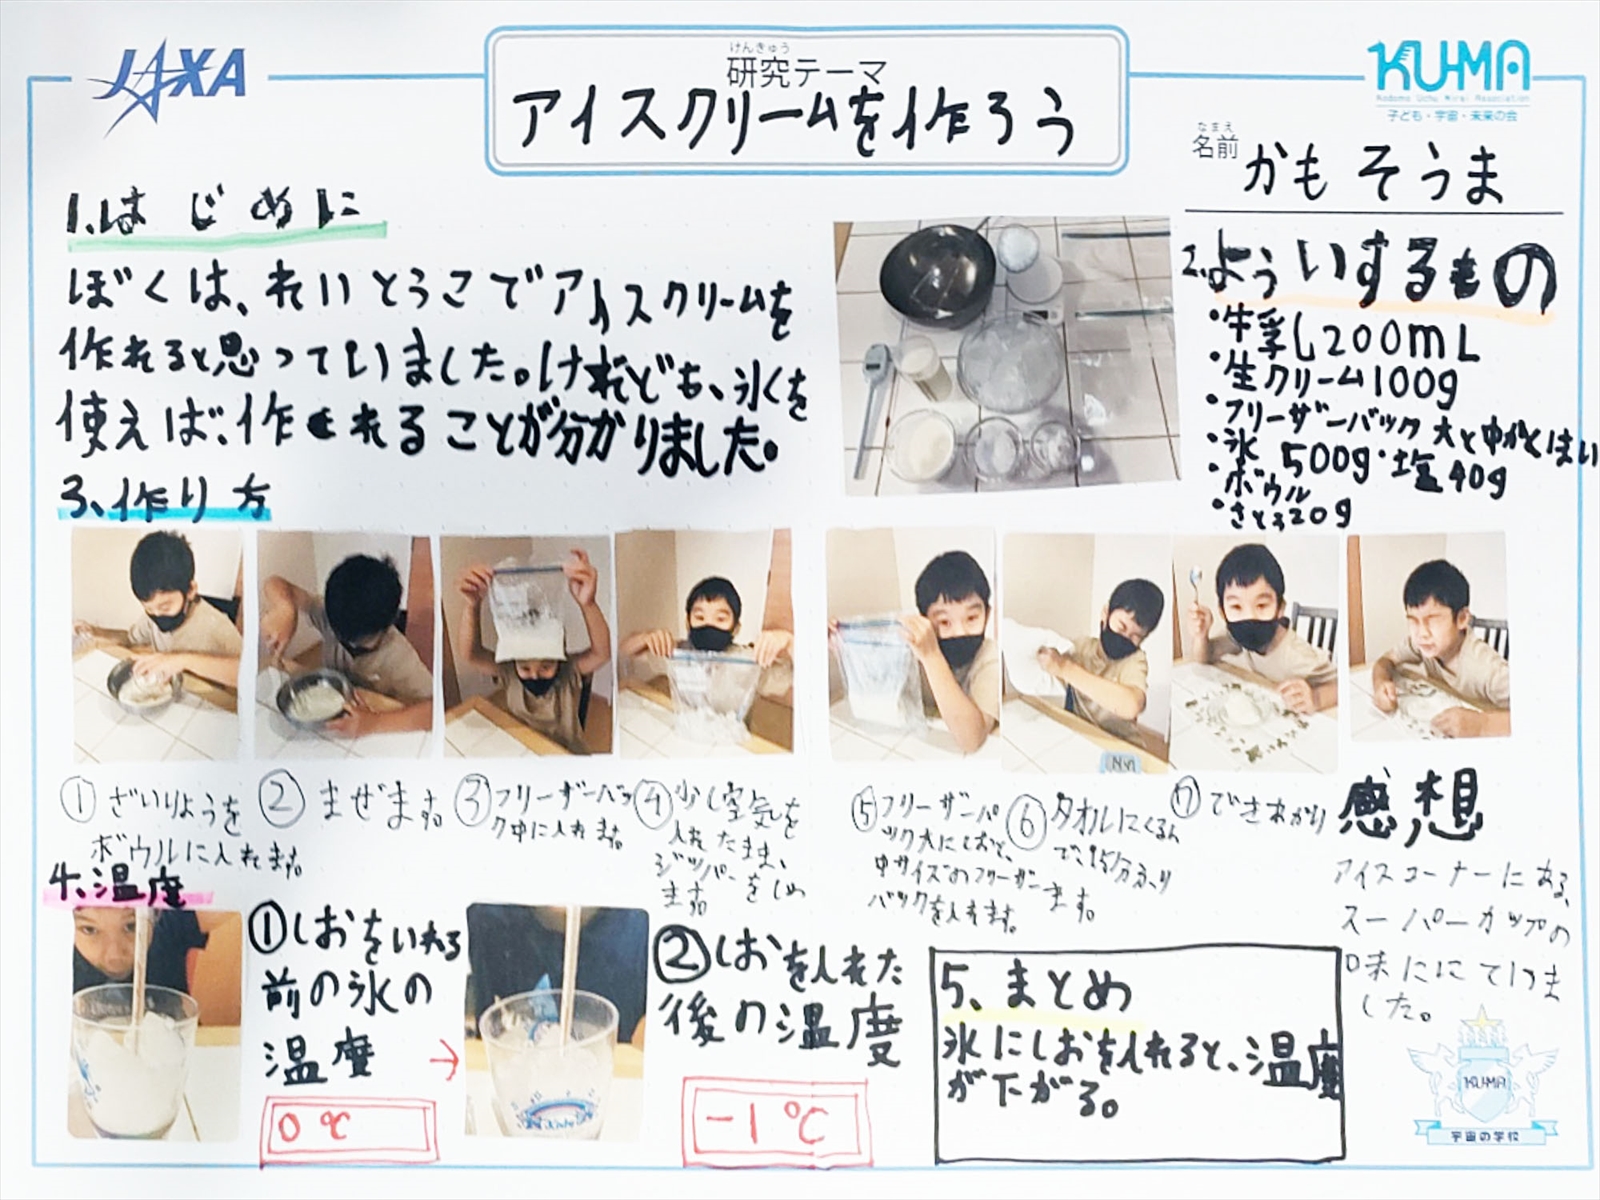 JAXA
けんきゅう
研究テーマ
アイスクリームを作ろう
KU-MA
Kodomo Uchu Mirai Association
子ども・宇宙・未来の会
なまえ
名前
かも そうま
1.はじめに
ぼくは、れいとうこでアイスクリームを
作れると思っていました。けれども、氷を
使えば、作れることが分かりました。
2.よういするもの
・牛乳し200mL
・生クリーム100g
・フリーザーバック 大と中がくはい
・氷 500g・塩40g
・ボウル
・さとう20g
3、作り方
①ざいりようを
ボウルに入れます。
②まぜます。
③フリーザーバッ
ク中に入れます。
④少し空気を
入れたまま、
ジッパーをしめ
ます。
⑤フリーザーバ
ック大にしおと、
中サイズのフリーザー
バックを入れます。
⑥タオルにくるん
で、15分ふり
ます。
⑦できあがり
感想
アイスコーナーにある、
スーパーカップの
味ににていま
した。
4、温度
①しおをいれる
前の氷の
温度
→
0℃
②しおを入れた
後の温度
-1℃
5、まとめ
氷にしおを入れると、温度
が下がる。
KU-MA
宇宙の学校